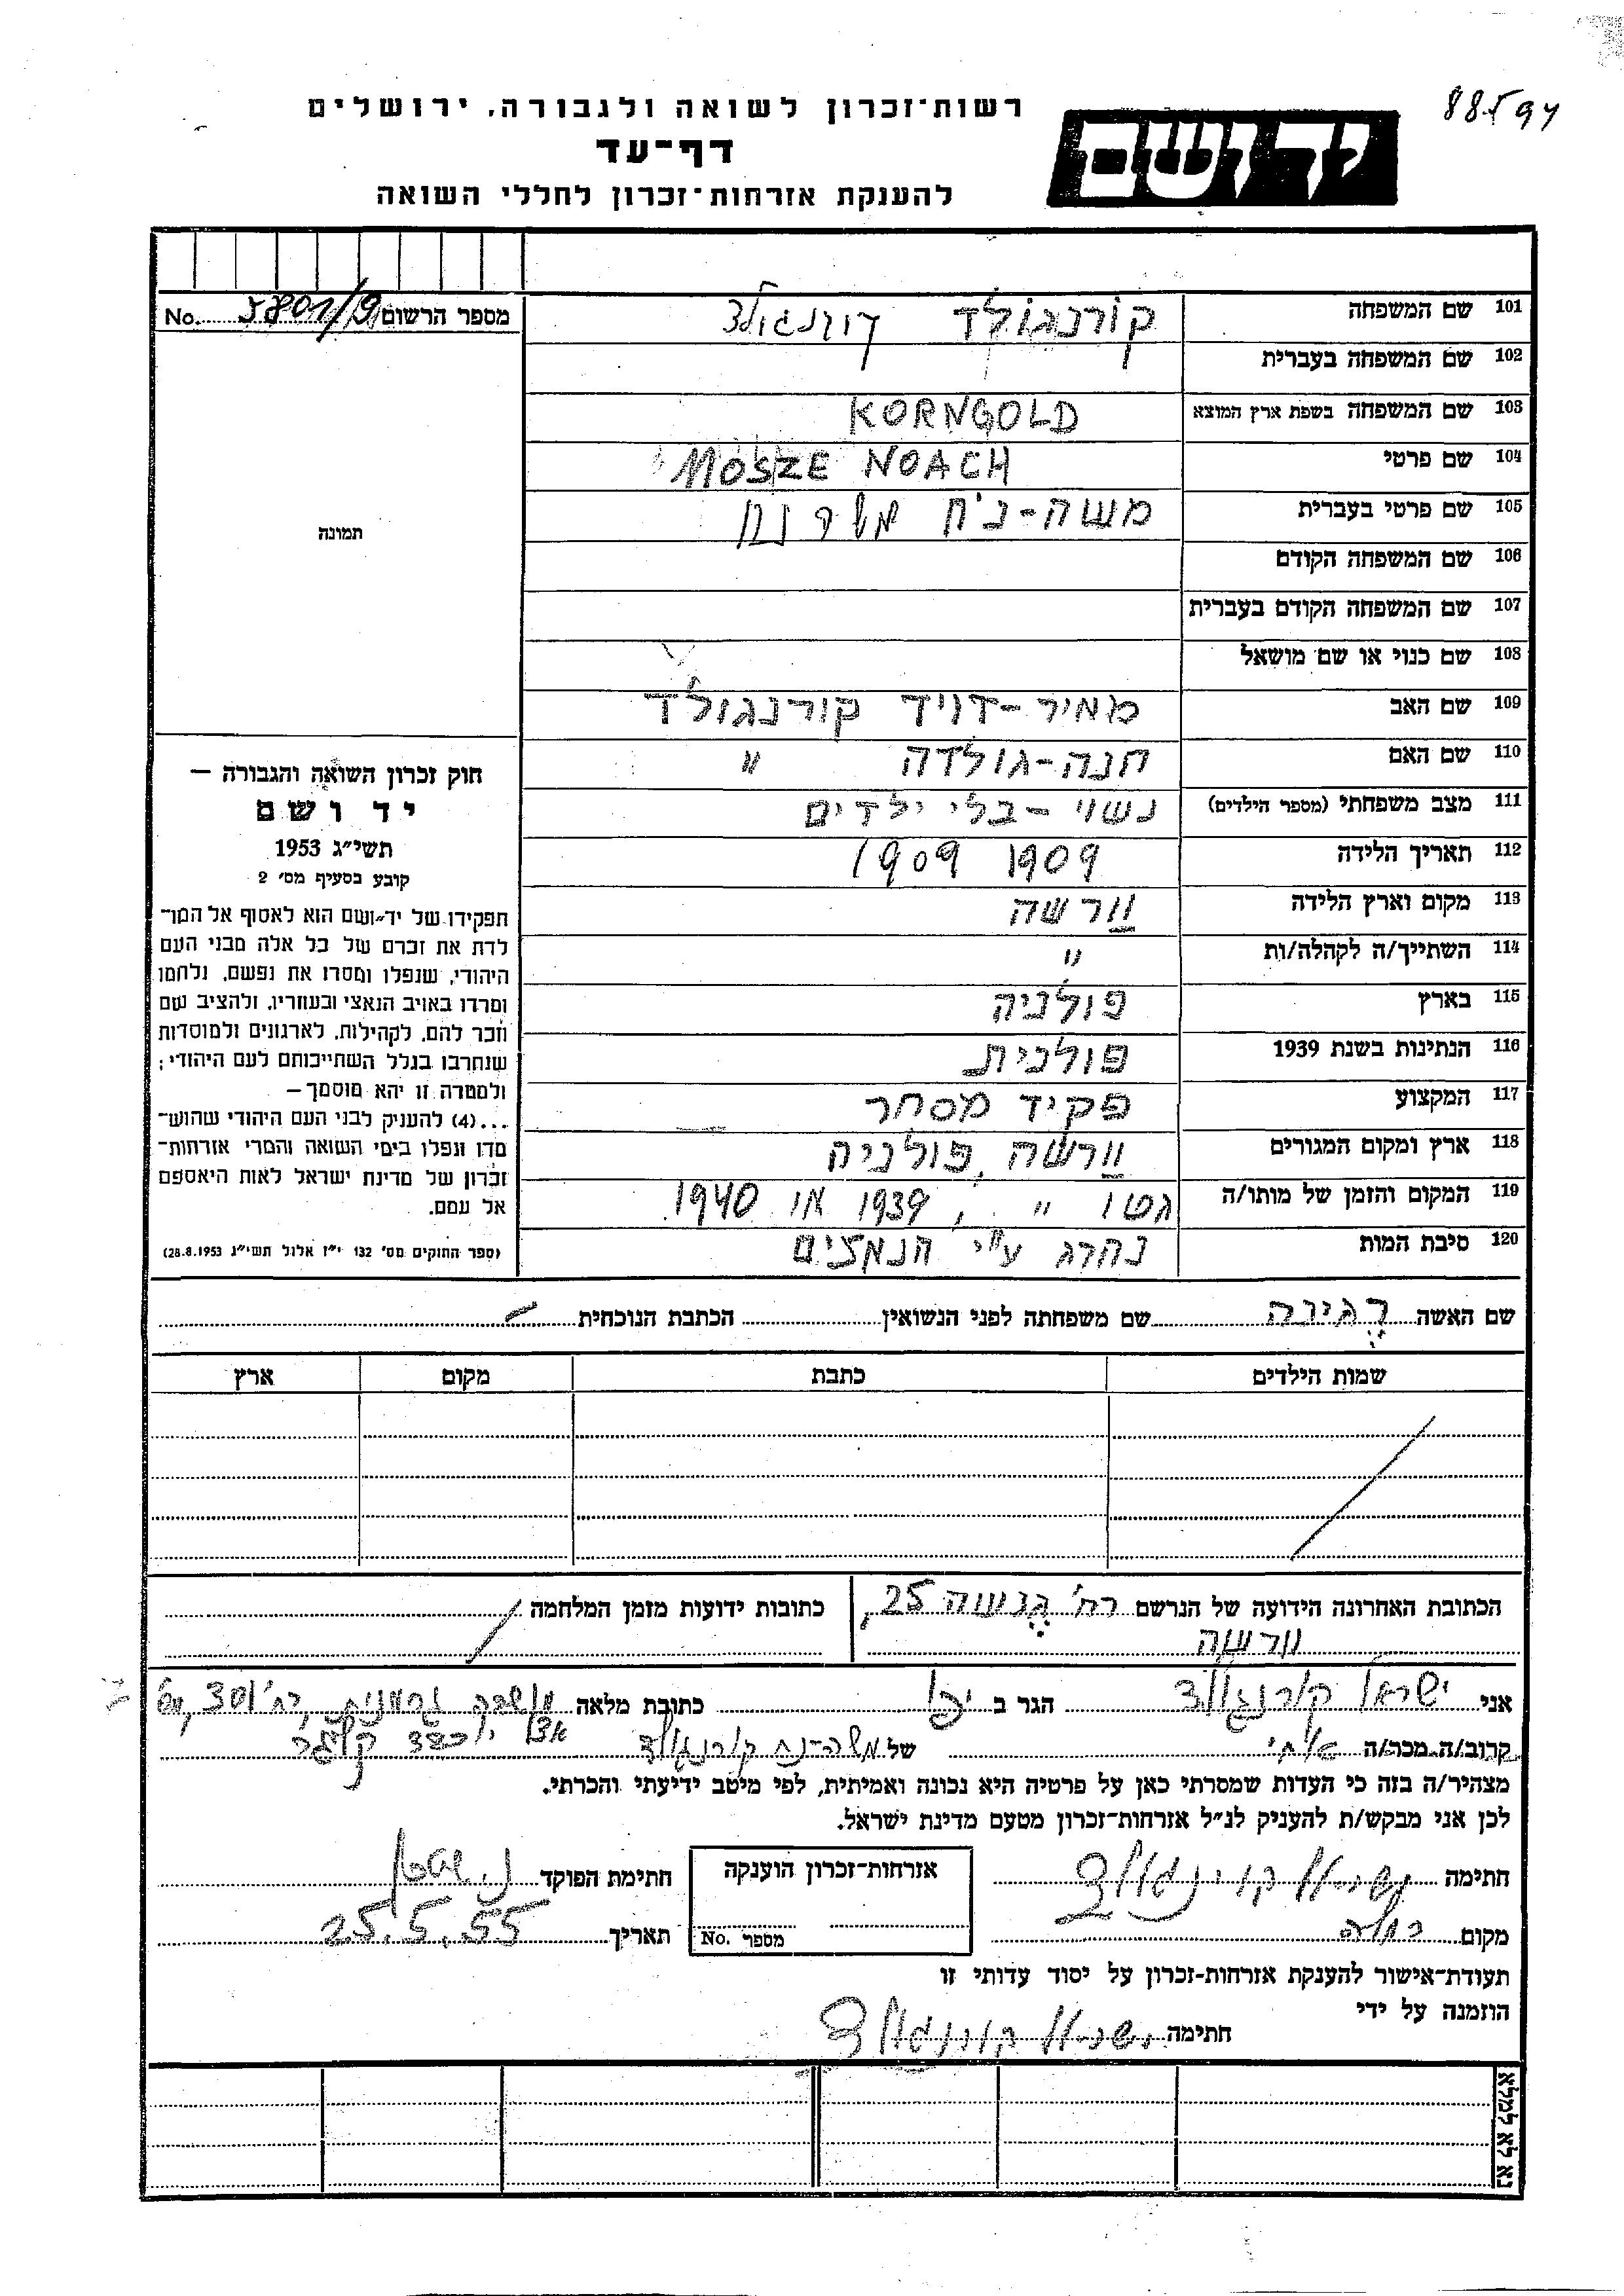 רשות־זכרון לשואה ולגבורה, ירושלים
דף־עד
להענקת אזרחות־זכרון לחללי השואה
יד ושם
מספר הרשום No. 5801/9
101 שם המשפחה קורנגולד קורנגולד
102 שם המשפחה בעברית
103 שם המשפחה בשפת ארץ המוצא KORNGOLD
104 שם פרטי MOSZE NOACH
105 שם פרטי בעברית משה-נח משה נח
106 שם המשפחה הקודם
107 שם המשפחה הקודם בעברית
108 שם כנוי או שם מושאל
109 שם האב מאיר-דויד קורנגולד
110 שם האם חנה-גולדה "
111 מצב משפחתי (מספר הילדים) נשוי - בלי ילדים
112 תאריך הלידה 1909 1909
113 מקום וארץ הלידה וורשה
114 השתייך/ה לקהלה/ות "
115 בארץ פולניה
116 הנתינות בשנת 1939 פולנית
117 המקצוע פקיד מסחר
118 ארץ ומקום המגורים וורשה, פולניה
119 המקום והזמן של מותו/ה גטו " , 1939 או 1940
120 סיבת המות נהרג ע"י הנאצים
תמונה
חוק זכרון השואה והגבורה —
יד ושם
תשי״ג 1953
קובע בסעיף מס׳ 2
תפקידו של יד־ושם הוא לאסוף אל המו־
לדת את זכרם של כל אלה מבני העם
היהודי, שנפלו ומסרו את נפשם, נלחמו
ומרדו באויב הנאצי ובעוזריו, ולהציב שם
וזכר להם, לקהילות, לארגונים ולמוסדות
שנחרבו בגלל השתייכותם לעם היהודי;
ולמטרה זו יהא מוסמך —
...(4) להעניק לבני העם היהודי שהוש־
מדו ונפלו בימי השואה והמרי אזרחות־
זכרון של מדינת ישראל לאות היאספם
אל עמם.
(ספר החוקים מס׳ 132 י״ז אלול תשי״ג 28.8.1953)
שם האשה רגינה שם משפחתה לפני הנשואין הכתבת הנוכחית
שמות הילדים כתבת מקום ארץ
הכתובת האחרונה הידועה של הנרשם רח' גנשה 25, כתובות ידועות מזמן המלחמה
וורשה
אני ישראל קורנגולד הגר ב יפו כתובת מלאה מושבה גרמנית, רח' 301,
קרוב/ה מכר/ה אחי של משה-נח קורנגולד אצל
מצהיר/ה בזה כי העדות שמסרתי כאן על פרטיה היא נכונה ואמיתית, לפי מיטב ידיעתי והכרתי.
לכן אני מבקש/ת להעניק לנ״ל אזרחות־זכרון מטעם מדינת ישראל.
חתימה ישראל קורנגולד אזרחות־זכרון הוענקה חתימת הפוקד
מקום רמלה מספר No. תאריך 25.5.55
תעודת־אישור להענקת אזרחות-זכרון על יסוד עדותי זו
הוזמנה על ידי
חתימה ישראל קורנגולד
נא לא למלא